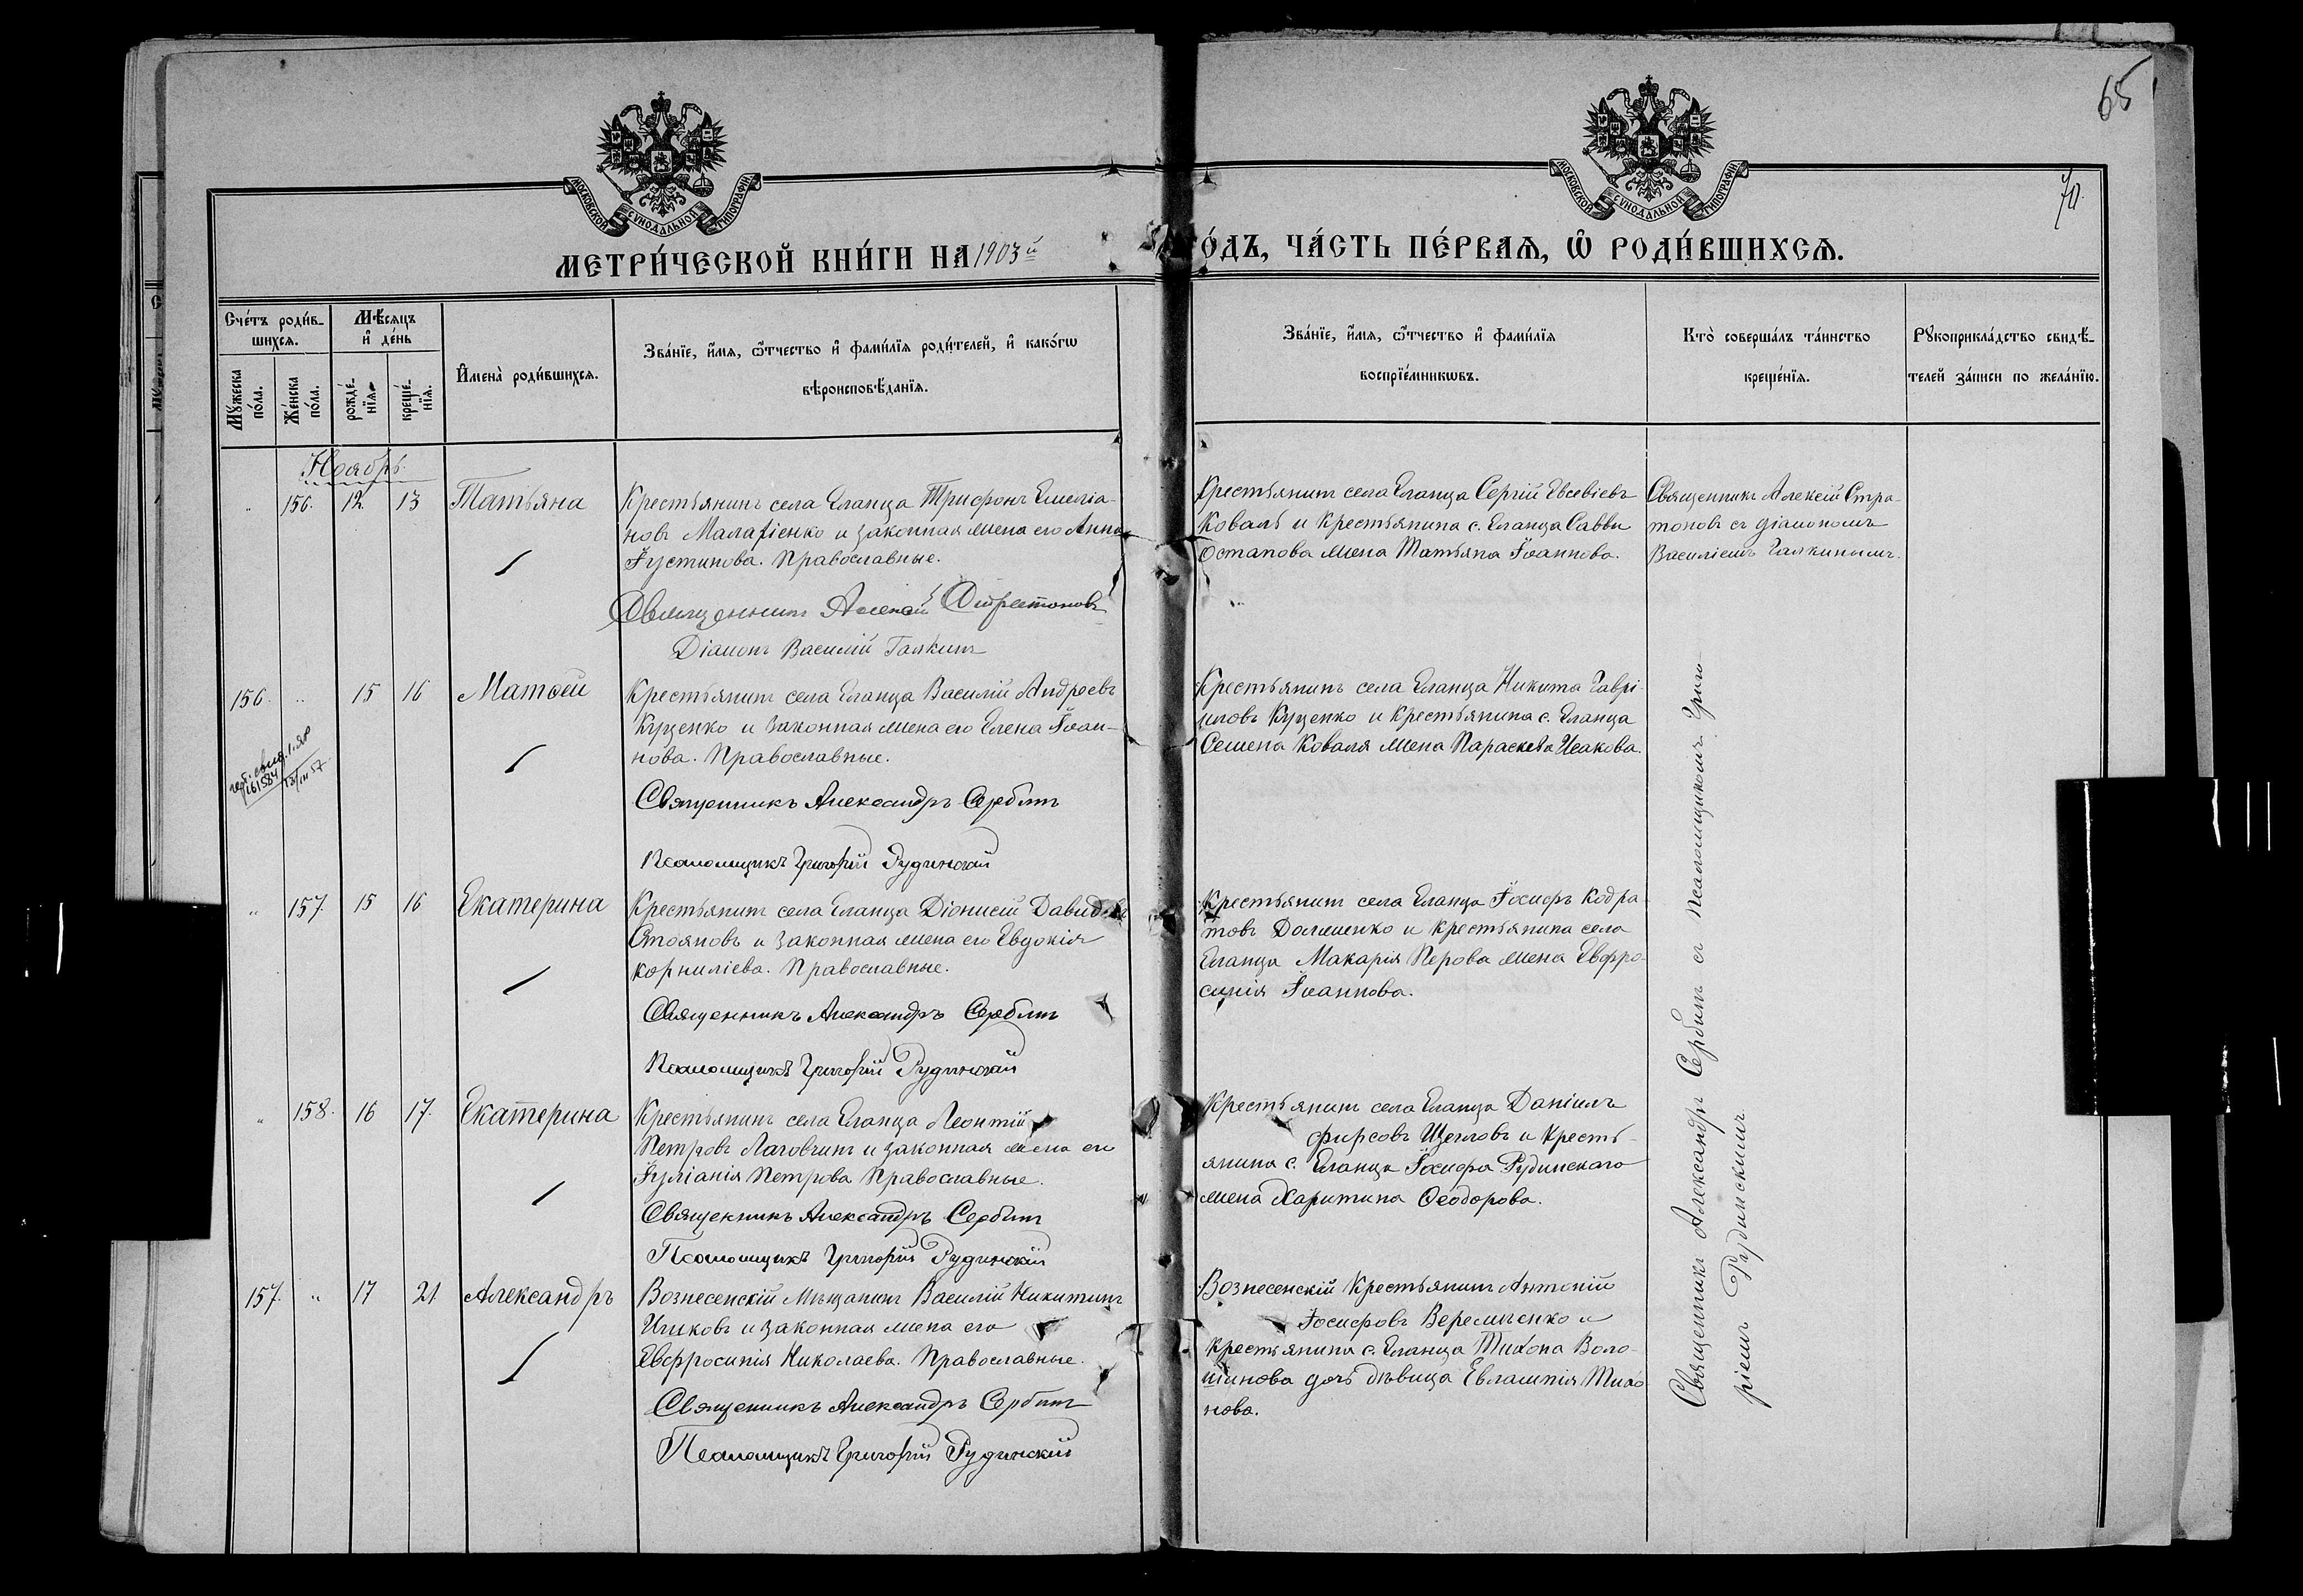 65
70.
МОСКОВСКОЙ СУНОДАЛЬНОЙ ТИПОГРАФІИ
МОСКОВСКОЙ СУНОДАЛЬНОЙ ТИПОГРАФІИ
МЕТРИ́ЧЕСКОЙ КНИ́ГИ НА 1903й
О́ДЪ, ЧА́СТЬ ПЕ́РВАѦ, Ѡ҆ РОДИ́ВШИХСѦ.
Сче́тъ роди́в-
шихсѧ.
Мѣ́сѧцъ
и҆ де́нь
Мꙋ́жеска
по́ла.
Же́нска
по́ла.
рожде́-
нїѧ.
креще́-
нїѧ.
И҆мена̀ роди́вшихсѧ.
Зва́нїе, и҆́мѧ, ѻ҆́тчество и҆ фами́лїѧ роди́телей, и҆ како́гѡ
вѣроисповѣ́данїѧ.
Зва́нїе, и҆́мѧ, ѻ҆́тчество и҆ фами́лїѧ
воспрїе́мникѡвъ.
Кто̀ соверша́лъ та́инство
креще́нїѧ.
Рꙋкоприкла́дство свидѣ́-
телей за́писи по жела́нїю.
Ноябрь.
„ 156. 12. 13 Татьяна
Крестьянинъ села Еланца Трифонъ Емелiа-
новъ Малафiенко и законная жена его Анна
Iустинова. Православные.
Священникъ Алексѣй Стратоновъ
Дiаконъ Василiй Галкинъ
Крестьянинъ села Еланца Сергiй Евсевiевъ
Коваль и крестьянина с. Еланца Саввы
Остапова жена Татьяна Iоаннова.
Священникъ Алексiй Стра-
тоновъ съ дiакономъ
Василiемъ Галкинымъ.
156. „ 15 16 Матѳей
161584
Крестьянинъ села Еланца Василiй Андреевъ
Куценко и законная жена его Елена Iоан-
нова. Православные.
Священникъ Александръ Сербинъ
Псаломщикъ Григорiй Рудинскiй
Крестьянинъ села Еланца Никита Гаврi-
иловъ Куценко и крестьянина с. Еланца
Семена Коваля жена Параскева Исакова.
„ 157. 15 16 Екатерина
Крестьянинъ села Еланца Дiонисiй Давидовъ
Стояновъ и законная жена его Евдокiя
Корнилiева. Православные.
Священникъ Александръ Сербинъ
Псаломщикъ Григорiй Рудинскiй
Крестьянинъ села Еланца Iосифъ Кодра-
товъ Долженко и крестьянина села
Еланца Макарiя Перова жена Евфро-
синiя Iоаннова.
„ 158. 16 17. Екатерина
Крестьянинъ села Еланца Леонтiй
Петровъ Лаговчинъ и законная жена его
Iулiанiя Петрова Православные.
Священникъ Александръ Сербинъ
Псаломщикъ Григорiй Рудинскiй
Крестьянинъ села Еланца Данiилъ
Фирсовъ Щегловъ и кресть-
янина с. Еланца Iосифа Рудинскаго
жена Харитина Ѳеодорова.
157. „ 17 21. Александръ
Вознесенскiй Мѣщанинъ Василiй Никитинъ
и законная жена его
Евфросинiя Николаева. Православные.
Священникъ Александръ Сербинъ
Псаломщикъ Григорiй Рудинскiй
Вознесенскiй Крестьянинъ Антонiй
Iосифовъ Веремiенко и
крестьянина с. Еланца Тихона Воло-
шинова дочь дѣвица Евлампiя Тихо-
нова.
Священникъ Александръ Сербинъ съ псаломщикомъ Григо-
рiемъ Рудинскимъ